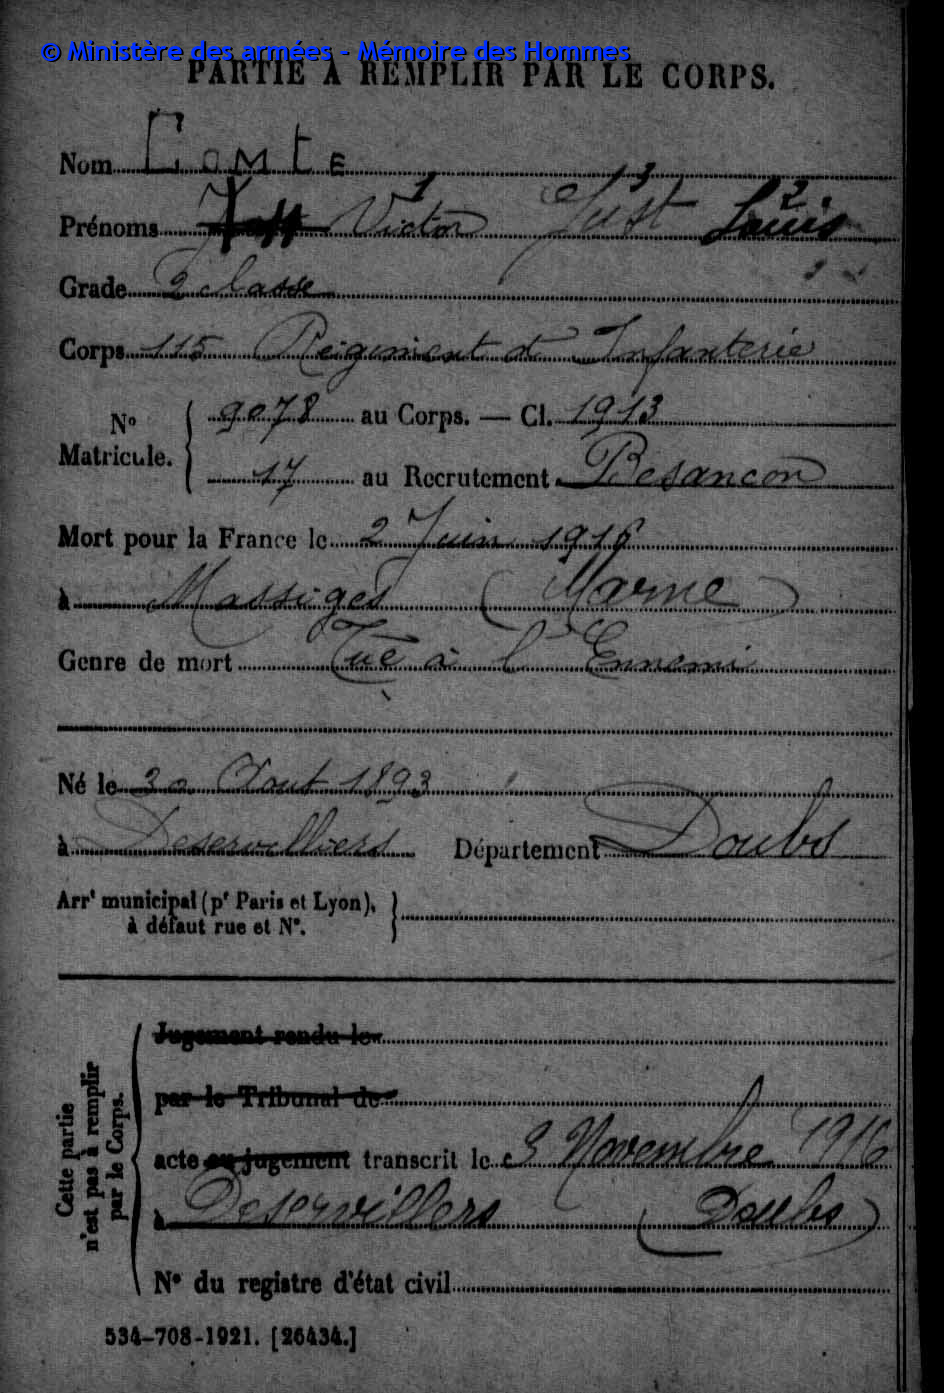 © Ministère des armées - Mémoire des Hommes
PARTIE A REMPLIR PAR LE CORPS.
Nom Comte
1 3 2
Prénoms Victor Just Louis
Grade 2 classe
Corps 115 Régiment d'Infanterie
N° Matricule. 9078 au Corps. — Cl. 1913
17 au Recrutement Besancon
Mort pour la France le 2 Juin 1916
à Massiges (Marne)
Genre de mort Tué à l'Ennemi
Né le 30 Aout 1893
à Deservillers Département Doubs
Arrt municipal (pr Paris et Lyon),
à défaut rue et N°.
Cette partie
n'est pas à remplir
par le Corps.
Jugement rendu le
par le Tribunal de
acte ou jugement transcrit le 3 Novembre 1916
à Deservillers (Doubs)
N° du registre d'état civil
534-708-1921. [26434.]